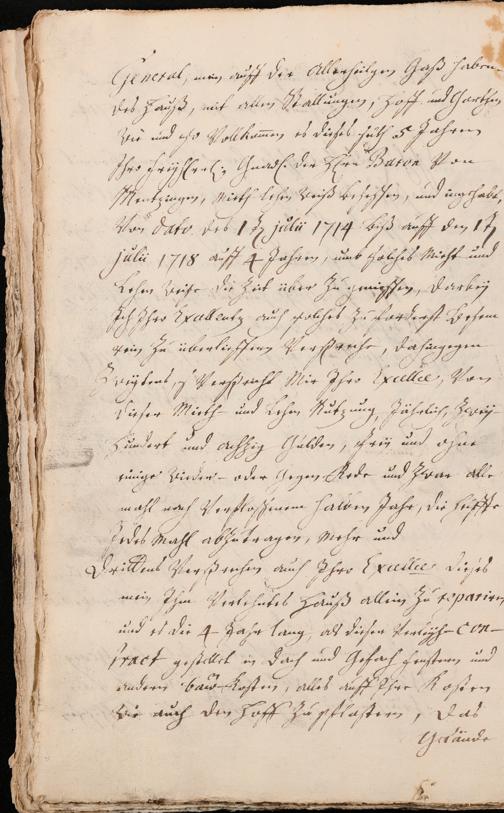 General, mein auff der Allerheiligen Gaß haben-
des Hauß, mit allen Stallungen, Hoff und Garthen
wie und so Vollkommen es dieses seith 5 Jahren
Ihro Freyherrl: Gnad. der Herr Baron von
Mentzingen, Mieth Lehen Weiß besessen, und ingehabt,
Von dato des 1 julii 1714 biß auff den 1
julii 1718 auff 4 Jahren, umb solches Mieht und
Lehen Weise die Zeit über zu geniessen, darbey
Ich Ihro Excellentz auch solches zu
rein zu überlieffern Verspreche, dahingegen
Zweytens, Verspricht Mir Ihro Excellce, Von
dieser Mieth und Lehen Nutzung, Jährlich, Zwey-
hundert und achtzig Gulden, frey und ohne
einige Wieder- oder Gegen Rede und Zwar alle
mahl nach Verflossenem halben Jahr, die helffte
Jedes Mahl abzutragen, Mehr und
Drittens Versprechen auch Ihro Excellce dieses
mein Ihm Verlehntes Hauß allein zu reparire
und es die 4 Jahr lang, als dieser Verleyh-Con-
tract gestellet in Dach und Gefach fenstern und
andern bau-Kosten, alles auff Ihre Kosten
Wie auch den Hoff Zu pflastern, das
Gebäude